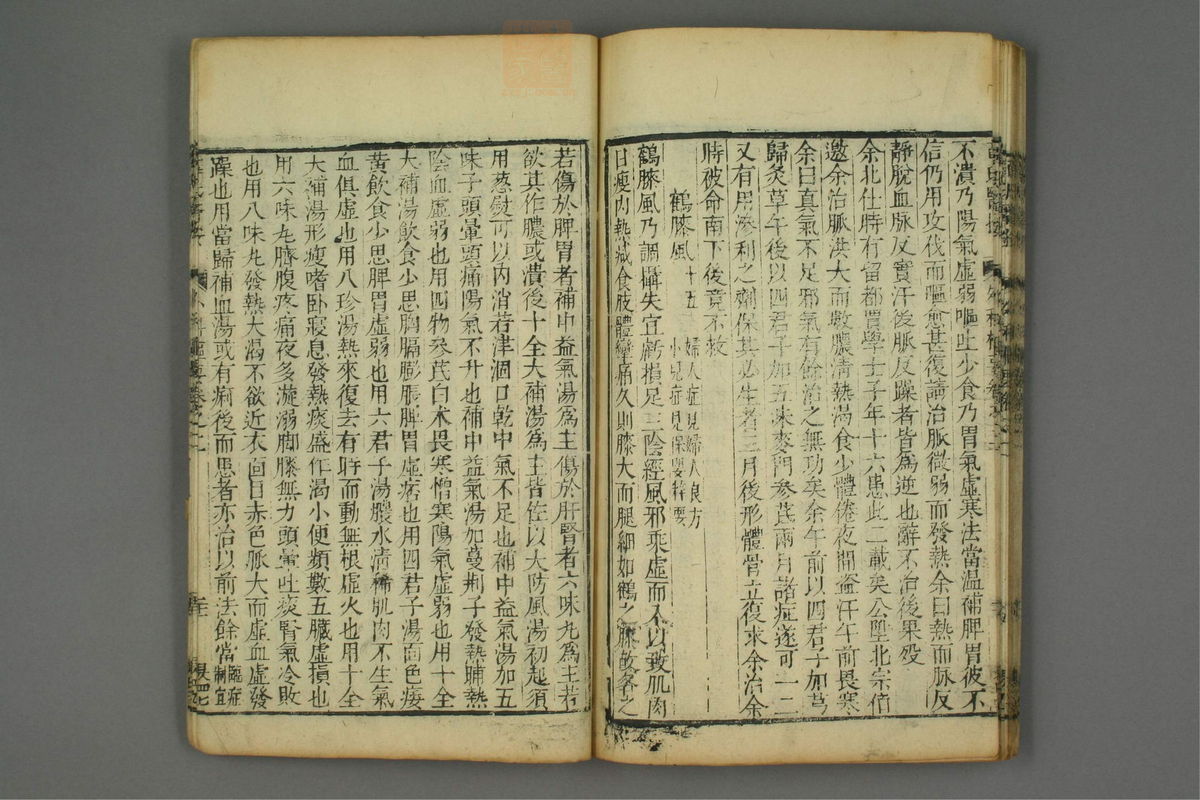 不潰乃陽氣虛弱嘔吐少食乃胃氣虛寒法當温補脾胃彼不
信仍用攻伐而嘔愈甚復請治脈微弱而發熱余曰熱而脉反
靜脫血脉反實汗後脈反躁者皆為逆也辭不治後果殁
余北仕時有留都賈學士子年十六患此二載矣公陞北宗伯
邀余治脈洪大而數膿清熱渴食少體倦夜間盗汗午前畏寒
余曰真氣不足邪氣有餘治之無功矣余午前以四君子加芎
歸炙草午後以四君子加五味麥門參芪兩月諸症遂可一二
又有用滲利之劑保其必生者三月後形體骨立復求余治余
時被命南下後竟不救
鶴膝風十五
婦人症見婦人良方
小兒症見保嬰粹要
鶴膝風乃調攝失宜虧損足三陰經風邪乗虛而入以致肌肉
日瘦内熱减食肢體攣痛久則膝大而腿細如鶴之膝故名之
若傷於脾胃者補中益氣湯為主傷於肝腎者六味丸為主若
飲其作膿或潰後十全大補湯為主皆佐以大防風湯初起須
用葱熨可以内消若津涸口乾中氣不足也補中益氣湯加五
味子頭暈頭痛陽氣不升也補中益氣湯加蔓荆子發熱晡熱
陰血虛弱也用四物參芪白术畏寒憎寒陽氣虛弱也用十全
大補湯飲食少思胸膈膨脹脾胃虛痞也用四君子湯面色痿
黄飲食少思脾胃虛弱也用六君子湯膿水清稀肌肉不生氣
血俱虛也用八珍湯熱來復去有時而動無根虛火也用十全
大補湯形瘦嗜卧寢息發熱痰盛作渴小便頻數五臟虛損也
用六味丸臍腹疼痛夜多漩溺脚膝無力頭暈吐痰腎氣冷敗
也用八味丸發熱大渴不欲近衣面目赤色脈大而虛血虛發
躁也用當歸補血湯或有痢後而患者亦治以前法餘當臨症
制宜